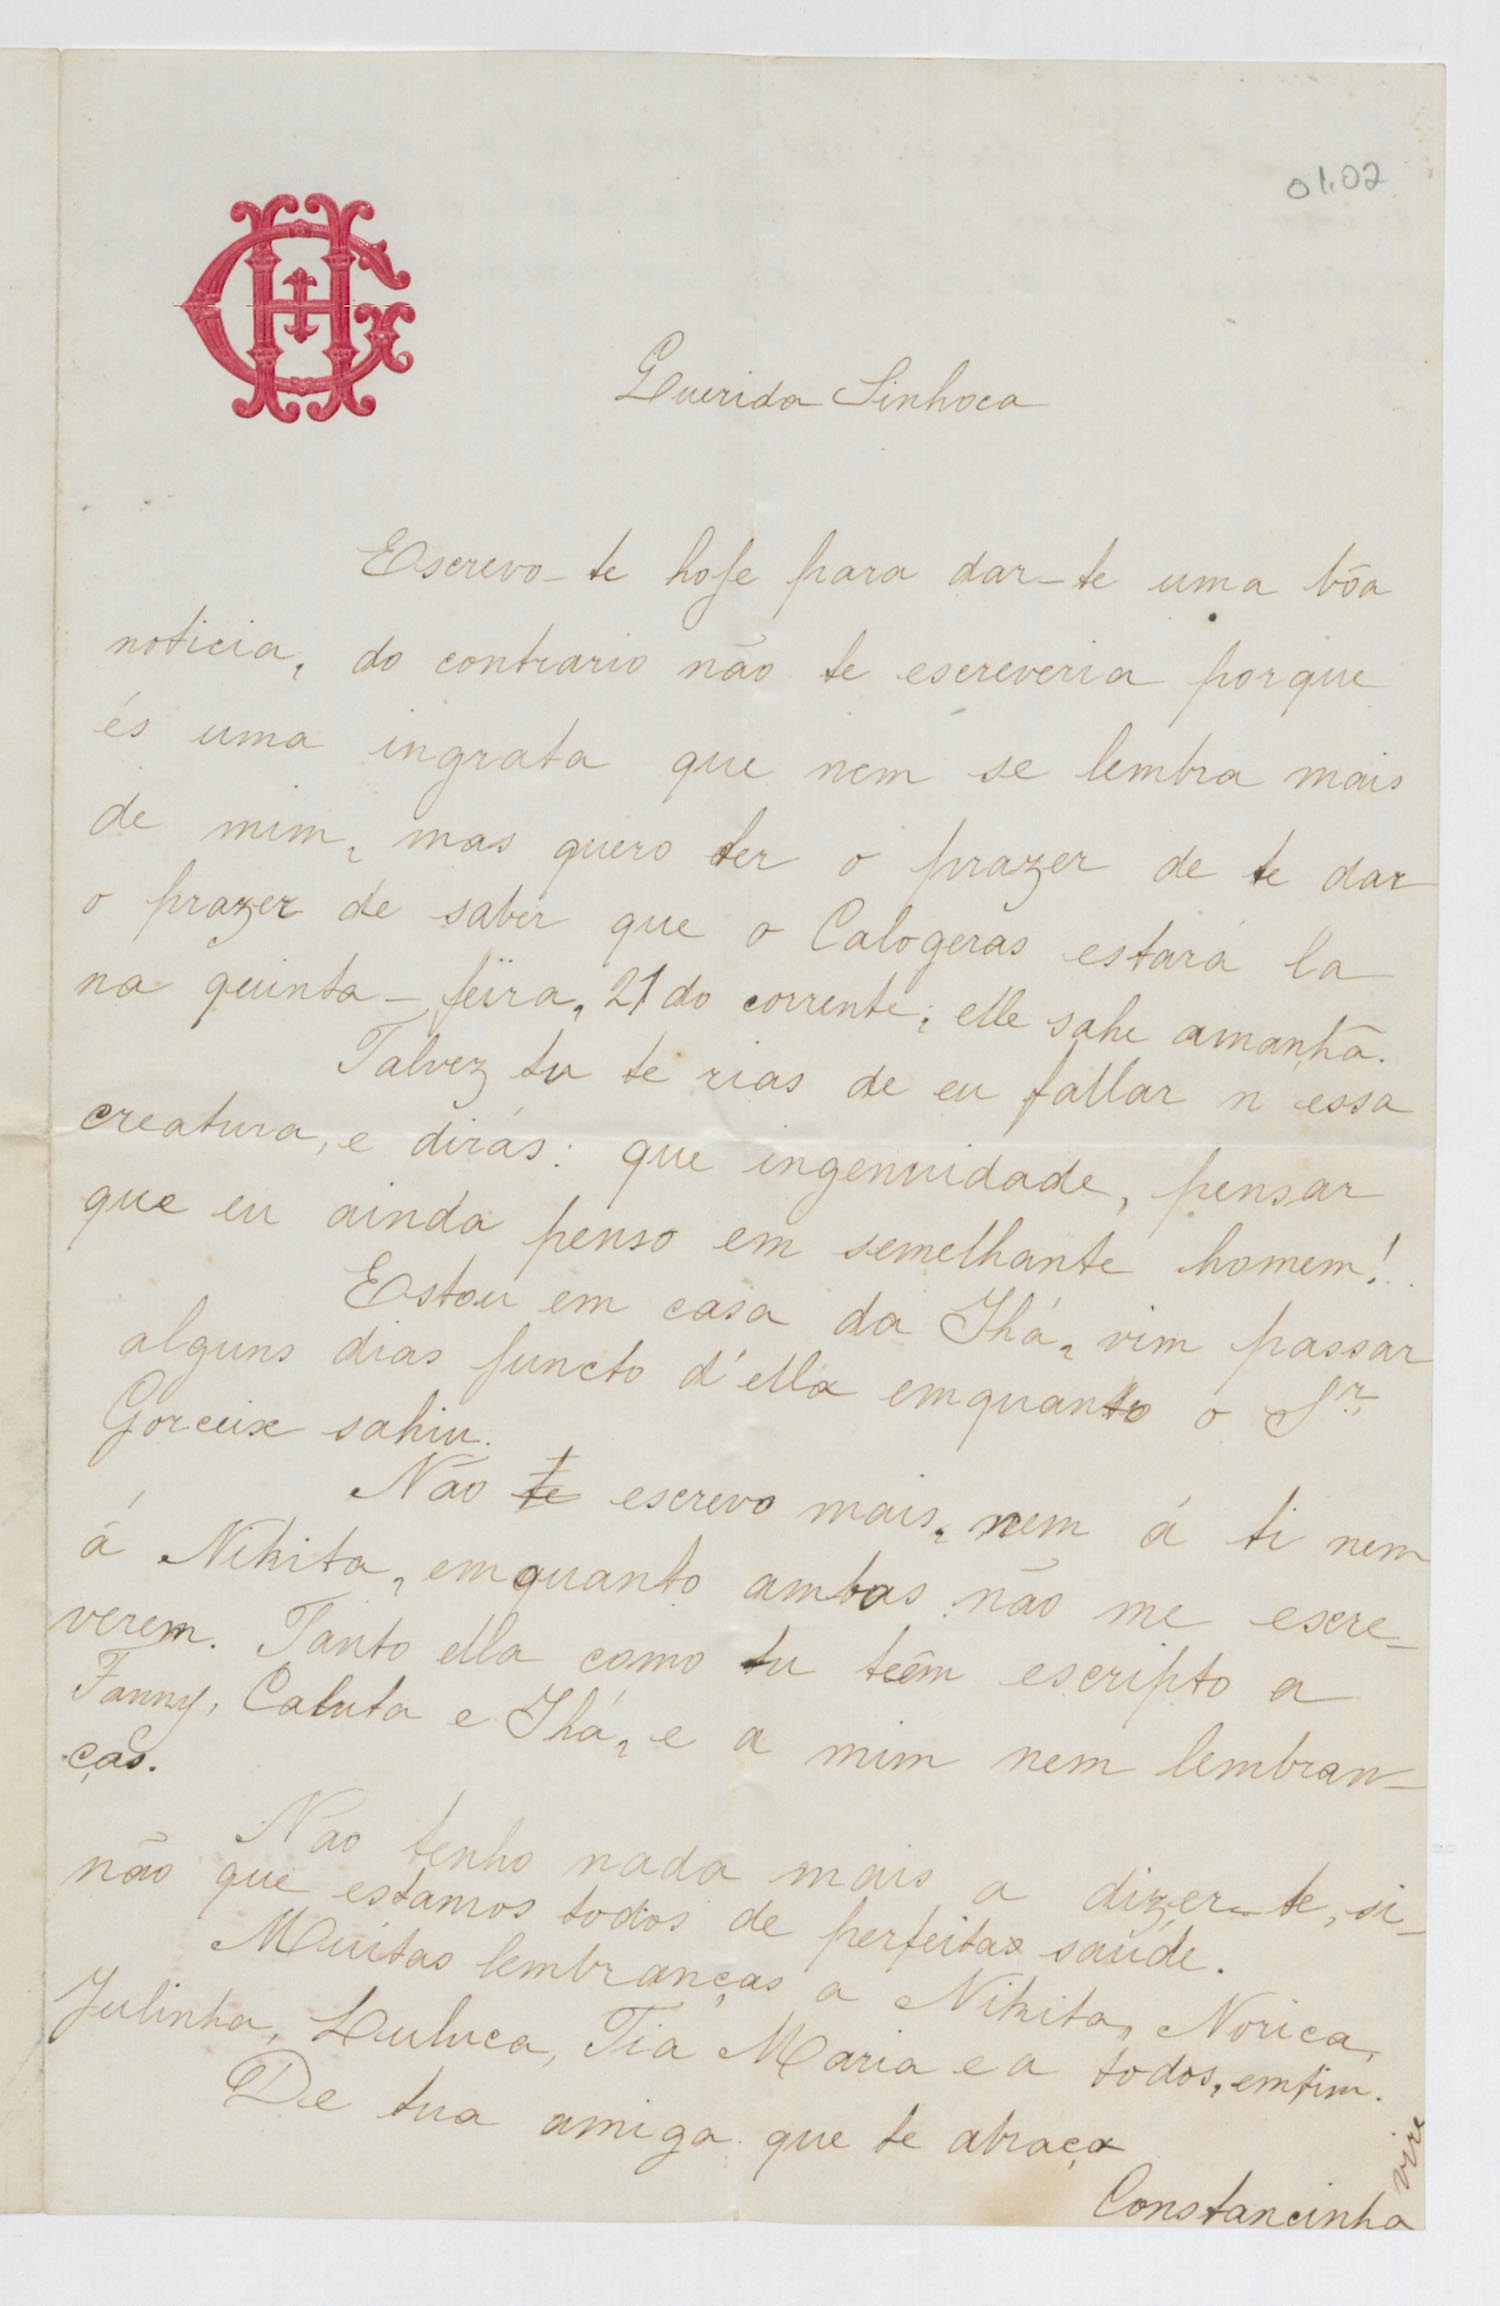 01.02
Querida Sinhoca
Escrevo-te hoje para dar-te uma bôa
noticia, do contrario não te escreveria porque
és uma ingrata que nem se lembra mais
de mim, mas quero ter o prazer de te dar
o prazer de saber que o Calogeras estará la
na quinta-feira, 21 do corrente; elle sahe amanhã.
Talvez tu te rias de eu fallar n'essa
creatura, e dirás: que ingenuidade, pensar
que eu ainda penso em semelhante homem!..
Estou em casa da Ihá, vim passar
alguns dias juncto d'ella emquanto o Sr.
Gorceix sahiu.
Não te escrevo mais, nem á ti nem
á Nikita, emquanto ambas não me escre-
verem. Tanto ella como tu teêm escripto a
Fanny, Caluta e Ihá, e a mim nem lembran-
ças.
Não tenho nada mais a dizer-te, si-
não que estamos todos de perfeita saúde.
Muitas lembranças a Nikita, Norica,
Julinha, Luluca, Tia Maria e a todos, emfim.
De tua amiga que te abraça
Constancinha
vire